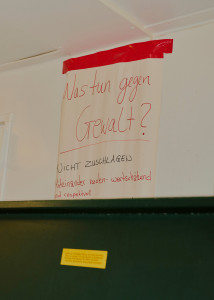 Was tun gegen
Gewalt?
NICHT ZUSCHLAGEN
Miteinander reden - wertschätzend
und respektvoll